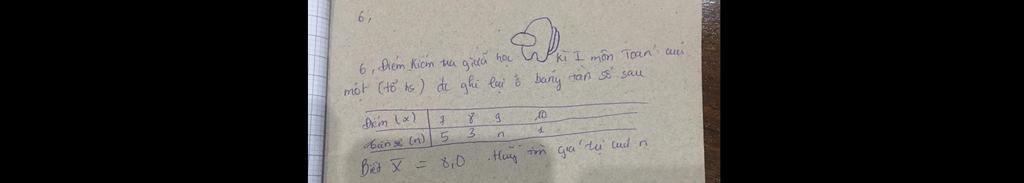 6,
6, Điểm kiểm tra giữa học kì I môn Toán của
một (tổ hs) đc ghi lại ở bảng tần số sau
Điểm (x) 7 8 9 10
Tần số (n) 5 3 n 1
Biết X̄ = 8,0 . Hãy tìm giá trị của n